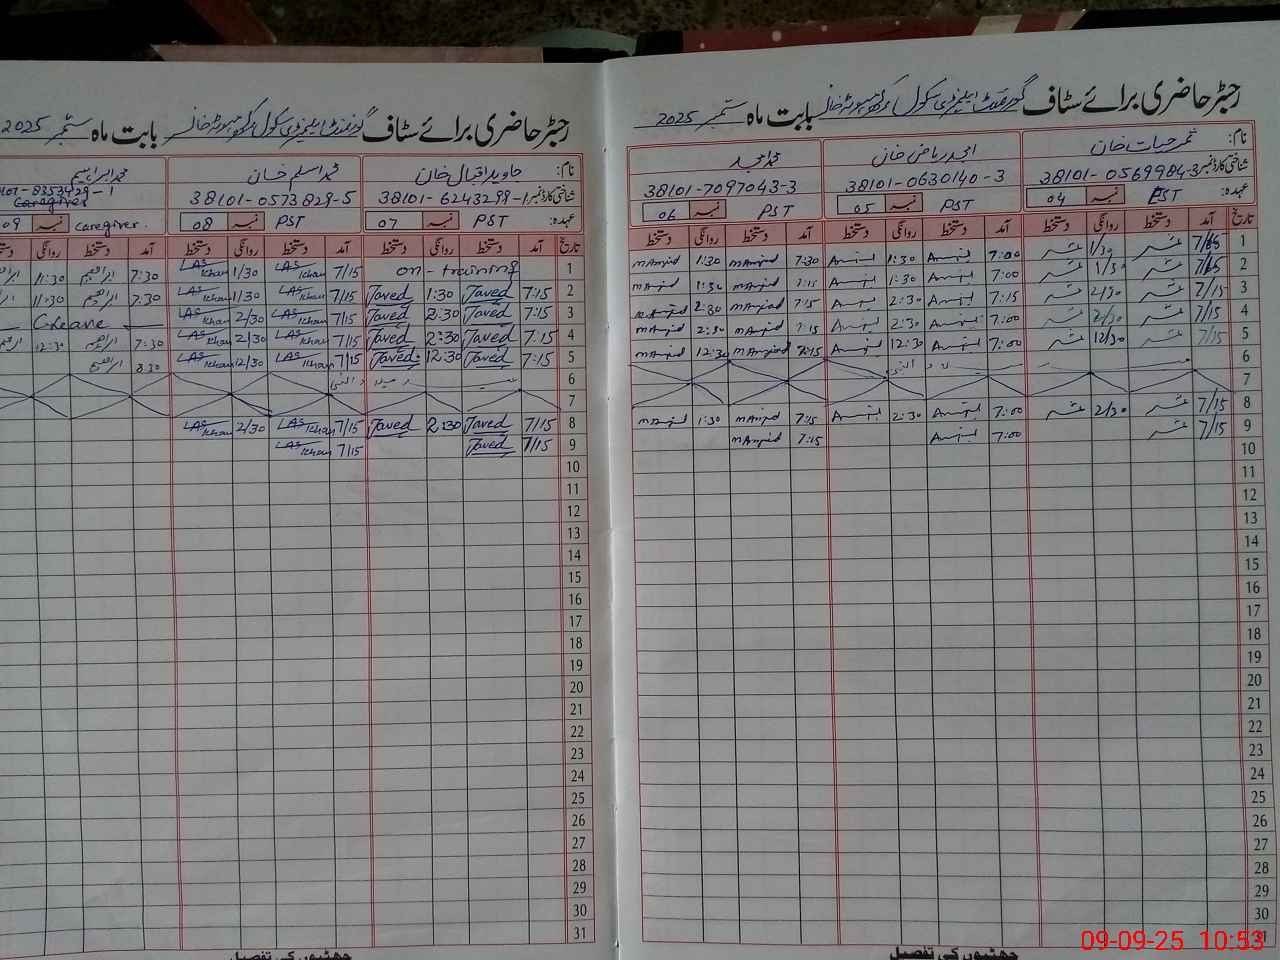 رجسٹر حاضری برائے سٹاف گورنمنٹ ایلیمنٹری سکول بابت ماہ ستمبر 2025
نام: ثمر حیات خان
شناختی کارڈ نمبر 38101-0569984-3
عہدہ: PST نمبر 04
امجد ریاض خان
38101-0630140-3
PST نمبر 05
محمد امجد
38101-7097043-3
PST نمبر 06
تاریخ آمد دستخط روانگی دستخط آمد دستخط روانگی دستخط آمد دستخط روانگی دستخط
1 7/15 1/30 7:00 1:30 7:30 M Amjad 1:30 M Amjad
2 7/15 1/30 7:00 1:30 7:15 M Amjad 1:30 M Amjad
3 7/15 2/30 7:15 2:30 7:15 M Amjad 2:30 M Amjad
4 7/15 2/30 7:00 2:30 7:15 M Amjad 2:30 M Amjad
5 7/15 12/30 7:00 12:30 7:15 M Amjad 12:30 M Amjad
6
7
8 7/15 2/30 7:00 2:30 7:15 M Amjad 1:30 M Amjad
9 7/15 7:00 7:15 M Amjad
10
11
12
13
14
15
16
17
18
19
20
21
22
23
24
25
26
27
28
29
30
31
چھٹیوں کی تفصیل
رجسٹر حاضری برائے سٹاف گورنمنٹ ایلیمنٹری سکول بابت ماہ ستمبر 2025
نام: جاوید اقبال خان
شناختی کارڈ نمبر 38101-6243299-1
عہدہ: PST نمبر 07
محمد اسلم خان
38101-0573829-5
PST نمبر 08
محمد ابراہیم
101-8353429-1
Caregiver
Caregiver. نمبر 09
تاریخ آمد دستخط روانگی دستخط آمد دستخط روانگی دستخط آمد دستخط روانگی
1 on-training 7/15 LAS Khan 1/30 LAS Khan 7:30 ابراہیم 11:30
2 7:15 Javed 1:30 Javed 7/15 LAS Khan 1/30 LAS Khan 7:30 ابراہیم 11:30
3 7:15 Javed 2:30 Javed 7/15 LAS Khan 2/30 LAS Khan
4 7:15 Javed 2:30 Javed 7/15 LAS Khan 2/30 LAS Khan 7:30 ابراہیم 12:30
5 7:15 Javed 12:30 Javed 7/15 LAS Khan 12/30 LAS Khan 8:30 ابراہیم
6
7
8 7/15 Javed 2:30 Javed 7/15 LAS Khan 2/30 LAS Khan
9 7/15 Javed 7/15 LAS Khan
10
11
12
13
14
15
16
17
18
19
20
21
22
23
24
25
26
27
28
29
30
31
چھٹیوں کی تفصیل
09-09-25 10:53